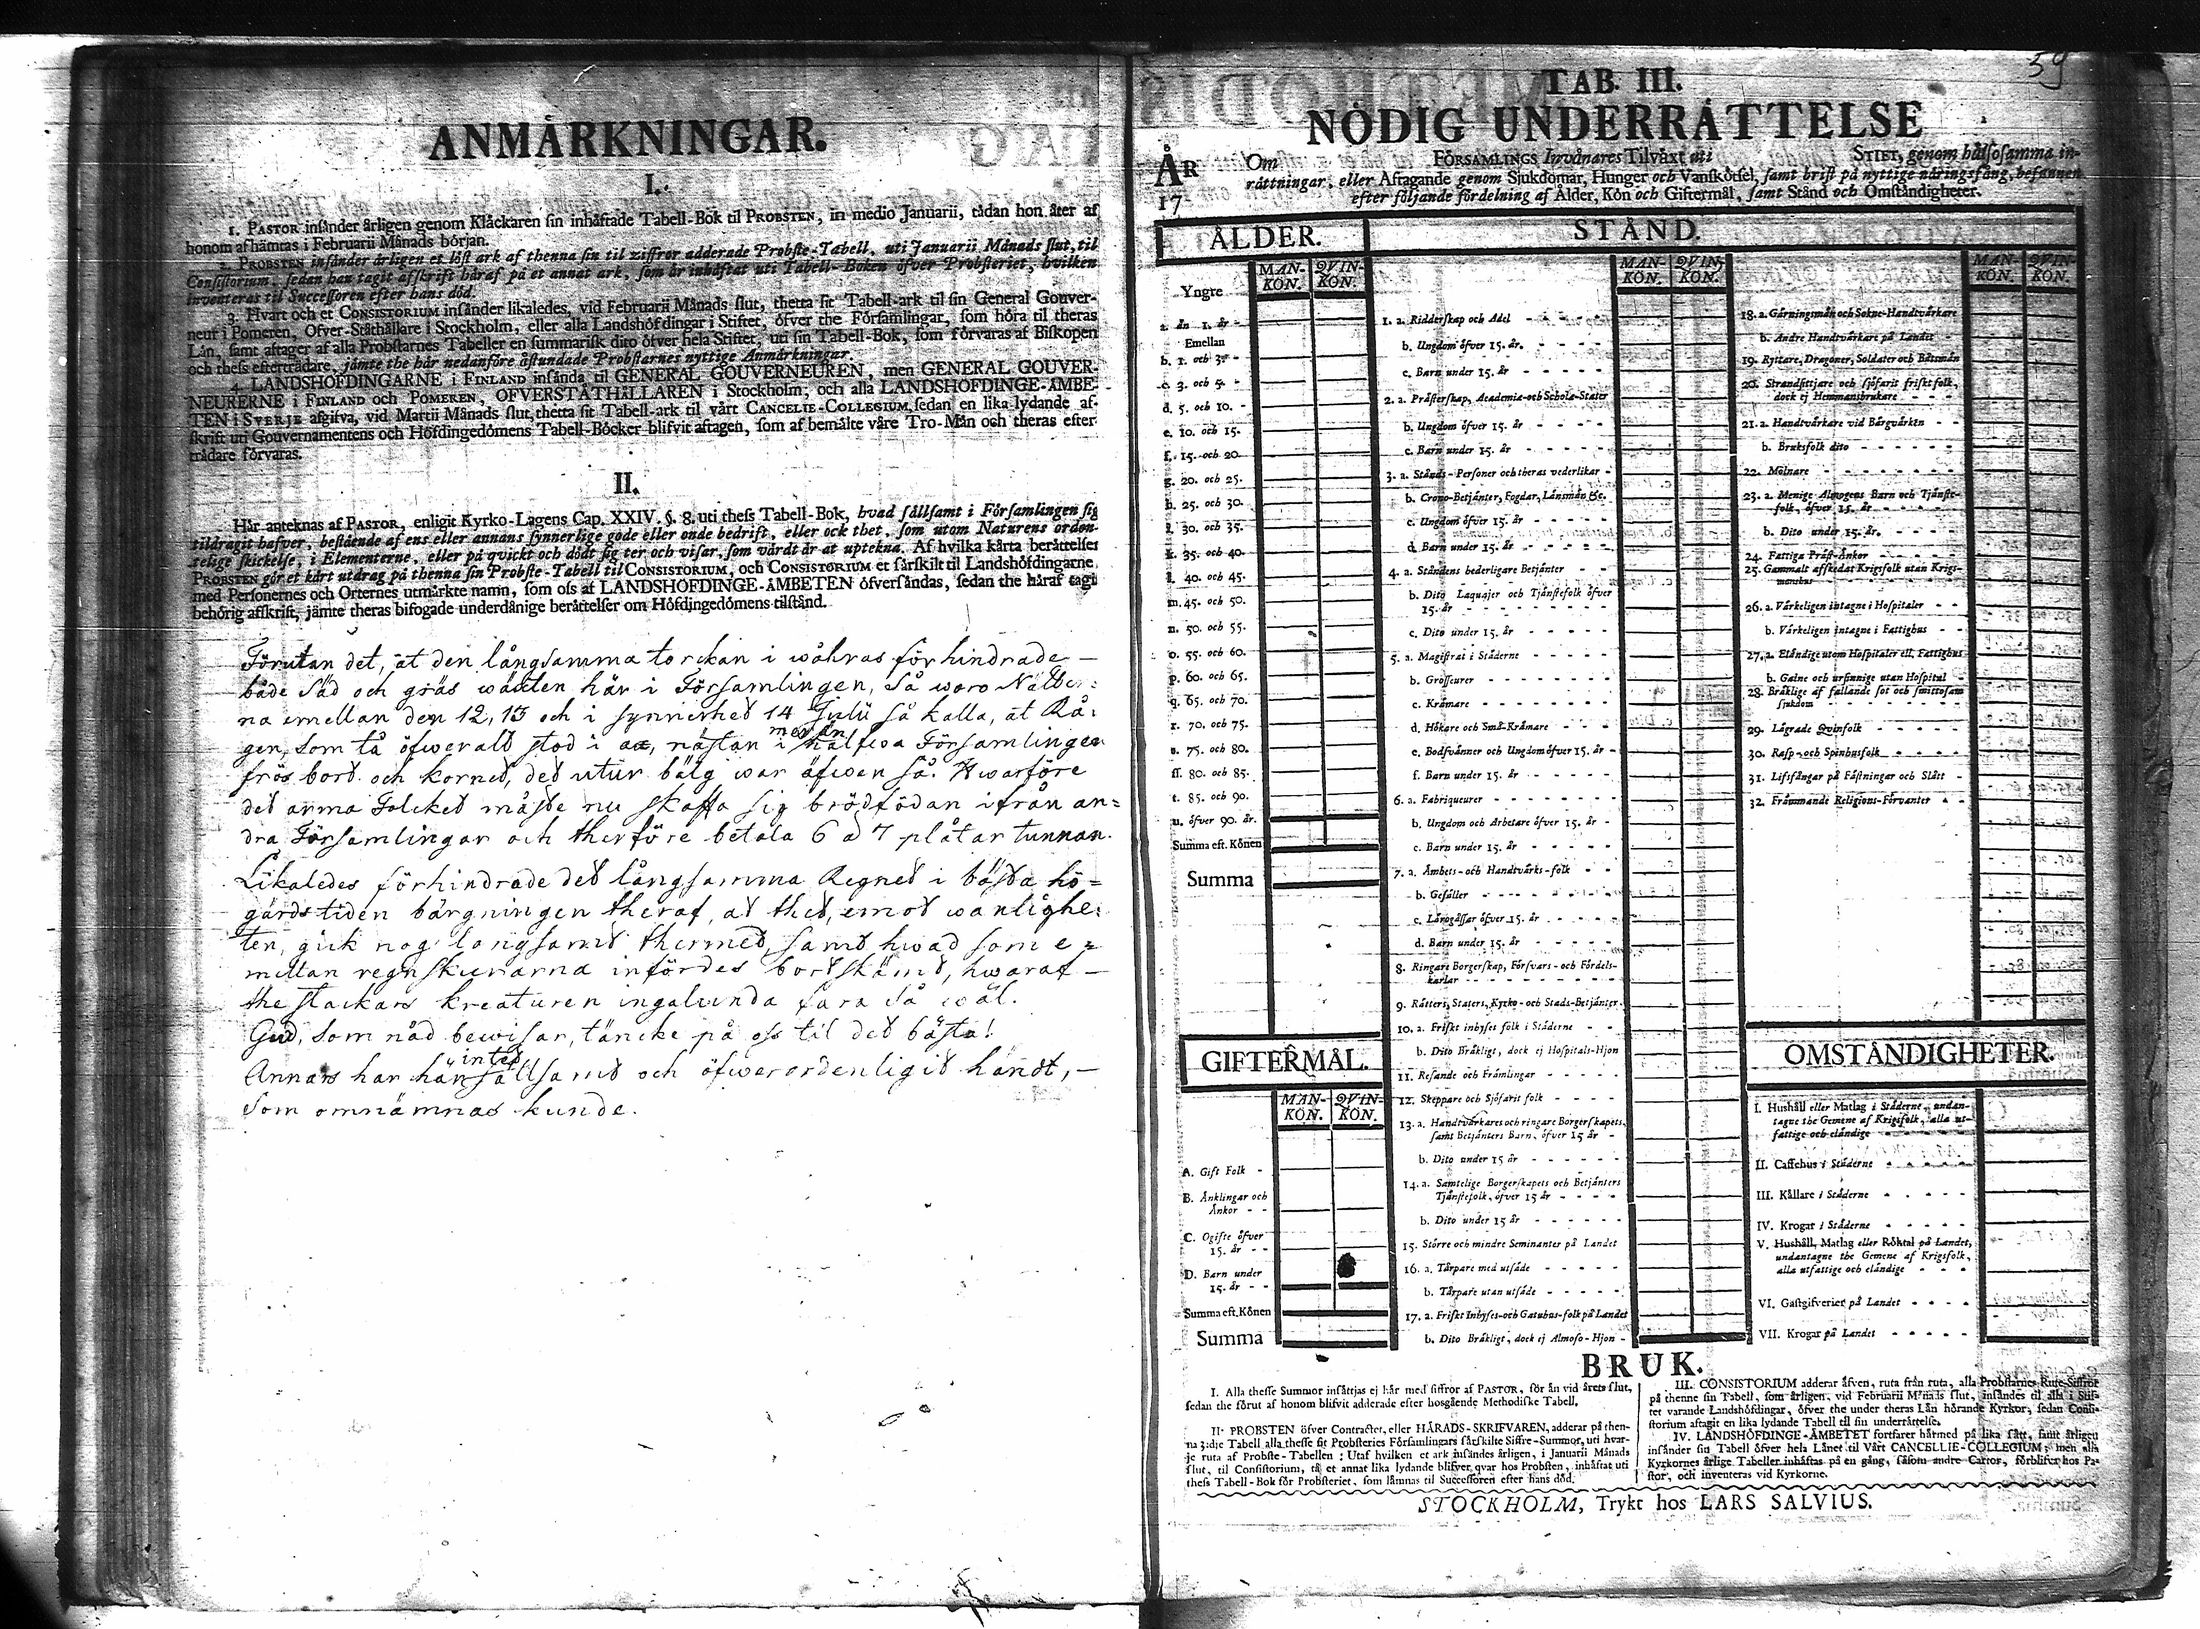 ANMÄRKNINGAR.
I.
1. PASTOR insänder årligen genom Klåckaren sin inhäftade Tabell-Bok til PROBSTEN, in medio Januarii, tädan hon åter af
honom afhämtas i Februarii Månads början.
2. PROBSTEN insänder årligen et löst ark af thenna sin til ziffror adderade Probste-Tabell, uti Januarii Månads slut, til
Consistorium, sedan han tagit afskrift häraf på et annat ark, som är inhäftat uti Tabell-Boken öfver Probsteriet, hvilken
inventeras til Successoren efter hans död.
3. Hvart och et CONSISTORIUM insänder likaledes, vid Februarii Månads slut, thetta sit Tabell-ark til sin General Gouver-
neur i Pomeren, Öfver-Ståthållare i Stockholm, eller alla Landshöfdingar i Stiftet, öfver the Församlingar, som höra til theras
Län, samt aftager af alla Probstarnes Tabeller en summarisk dito öfver hela Stiftet, uti sin Tabell-Bok, som förvaras af Biskopen
och thess efterträdare, jämte the här nedanföre åstundade Probstarnes nyttige Anmärkningar.
4. LANDSHÖFDINGARNE i FINLAND insända til GENERAL GOUVERNEUREN, men GENERAL GOUVER-
NEURERNE i FINLAND och POMEREN, ÖFVERSTÅTHÅLLAREN i Stockholm, och alla LANDSHÖFDINGE-ÄMBE-
TEN i SVERJE afgifva, vid Martii Månads slut, thetta sit Tabell-ark til vårt CANCELIE-COLLEGIUM, sedan en lika lydande af-
skrift uti Gouvernamentens och Höfdingedömens Tabell-Böcker blifvit aftagen, som af bemälte våre Tro-Män och theras efter-
trädare förvaras.
II.
Här anteknas af PASTOR, enligit Kyrko-Lagens Cap. XXIV. §. 8. uti thess Tabell-Bok, hvad sällsamt i Församlingen sig
tildragit hafver, bestående af ens eller annans synnerlige gode eller onde bedrift, eller ock thet, som utom Naturens orden-
telige skickelse, i Elementerne, eller på qvickt och dödt sig ter och visar, som värdt är at uptekna. Af hvilka kårta berättelser
PROBSTEN gör et kårt utdrag på thenna sin Probste-Tabell til CONSISTORIUM, och CONSISTORIUM et särskilt til Landshöfdingarne
med Personernes och Orternes utmärkte namn, som oss af LANDSHÖFDINGE-ÄMBETEN öfversändas, sedan the häraf tagit
behörig afskrift, jämte theras bifogade underdånige berättelser om Höfdingedömens tilstånd.
Förutan det, at den långsamma torckan i wåhras förhindrade
både Säd och gräs wäxten här i Församlingen, Så woro Nätter:
na emellan den 12, 13 och i synnerhet 14 Julii så kalla, at Rå:
gen, som tå öfweralt stod i ax, nästan i mer än halfwa Församlingen
frös bort och kornet, det utur bälg war äfwen så. Hwarföre
det arma Folcket måste nu skaffa sig brödfödan ifrån an=
dra Församlingar och therföre betala 6 a 7 plåtar tunnan.
Likaledes förhindrade det långsamma Regnet i bästa hö=
gärds tiden bärgningen theraf, at thet, emot wanlighe:
ten, gick nog långsamt thermed, samt hwad som e=
mellan regnskurarna infördes bortskämt, hwaraf
the stackars kreaturen ingalunda fara så wäl.
Gud, som nåd bewisar, täncke på oss til det bästa!
Annars har här intet sällsamt och öfwerordenligit händt,
Som omnämnas kunde.
59
TAB. III.
NÖDIG UNDERRÄTTELSE
ÅR 17 Om FÖRSAMLINGS Invånares Tilväxt uti STIFT, genom hälsosamma in-
rättningar, eller Aftagande genom Sjukdomar, Hunger och Vanskötsel, samt brist på nyttige näringsfång, befunnen
efter följande fördelning af Ålder, Kön och Giftermål, samt Stånd och Omständigheter.
ÅLDER.
MAN-KÖN. QVIN-KÖN.
Yngre
a. än 1. år
Emellan
b. 1. och 3.
c. 3. och 5.
d. 5. och 10.
e. 10. och 15.
f. 15. och 20.
g. 20. och 25.
h. 25. och 30.
i. 30. och 35.
k. 35. och 40.
l. 40. och 45.
m. 45. och 50.
n. 50. och 55.
o. 55. och 60.
p. 60. och 65.
q. 65. och 70.
r. 70. och 75.
s. 75. och 80.
ss. 80. och 85.
t. 85. och 90.
u. öfver 90. år.
Summa eft. Könen
Summa
GIFTERMÅL.
MAN-KÖN. QVIN-KÖN.
A. Gift Folk
B. Änklingar och
Änkor
C. Ogifte öfver
15. år
D. Barn under
15. år
Summa eft. Könen
Summa
STÅND.
MAN-KÖN. QVIN-KÖN.
1. a. Ridderskap och Adel
b. Ungdom öfver 15. år.
c. Barn under 15. år
2. a. Prästerskap, Academiæ-och Scholæ-Stater
b. Ungdom öfver 15. år
c. Barn under 15. år
3. a. Stånds-Personer och theras vederlikar
b. Crono-Betjänter, Fogdar, Länsmän &c.
c. Ungdom öfver 15. år
d. Barn under 15. år
4. a. Ståndens hederligare Betjänter
b. Dito Laquajer och Tjänstefolk öfver
15. år
c. Dito under 15. år
5. a. Magistrat i Städerne
b. Grosseurer
c. Krämare
d. Hökare och Små-Krämare
e. Bodsvänner och Ungdom öfver 15. år
f. Barn under 15. år
6. a. Fabriqueurer
b. Ungdom och Arbetare öfver 15. år
c. Barn under 15. år
7. a. Ämbets-och Handtvärks-folk
b. Gesäller
c. Lärogåssar öfver 15. år
d. Barn under 15. år
8. Ringare Borgerskap, Försvars-och Fördels-
karlar
9. Rätteri, Staters, Kyrko-och Stads-Betjänter
10. a. Friskt inhyses folk i Städerne
b. Dito Bräkligt, dock ej Hospitals-Hjon
11. Resande och Främlingar
12. Skeppare och Sjöfarit folk
13. a. Handtvärkares och ringare Borgerskapets,
samt Betjänters Barn, öfver 15 år
b. Dito under 15 år
14. a. Samtelige Borgerskapets och Betjänters
Tjänstefolk, öfver 15 år
b. Dito under 15 år
15. Större och mindre Seminanter på Landet
16. a. Tårpare med utsäde
b. Tårpare utan utsäde
17. a. Friskt Inhyses-och Gatuhus-folk på Landet
b. Dito Bräkligt, dock ej Almoso-Hjon
MAN-KÖN. QVIN-KÖN.
18. a. Gärningsmän och Sokne-Handtvärkare
b. Andre Handtvärkare på Landet
19. Ryttare, Dragoner, Soldater och Båtsmän
20. Strandsittjare och sjöfarit friskt folk,
dock ej Hemmansbrukare
21. a. Handtvärkare vid Bärgvärken
b. Bruksfolk dito
22. Mölnare
23. a. Menige Almogens Barn och Tjänste-
folk, öfver 15. år
b. Dito under 15. år.
24. Fattiga Präst-Änkor
25. Gammalt affskedat Krigsfolk utan Krigs-
manshus
26. a. Värkeligen intagne i Hospitaler
b. Värkeligen intagne i Fattighus
27. a. Eländige utom Hospitaler ell. Fattighus
b. Galne och ursinnige utan Hospital
28. Bräklige af fallande sot och smittosam
sjukdom
29. Lägrade Qvinfolk
30. Rasp-och Spinhusfolk
31. Lifsfångar på Fästningar och Slått
32. Främmande Religions-Förvanter
MAN-KÖN. QVIN-KÖN.
OMSTÄNDIGHETER.
I. Hushåll eller Matlag i Städerne, undan-
tagne the Gemene af Krigsfolk, alla ut-
fattige och eländige
II. Caffehus i Städerne
III. Källare i Städerne
IV. Krogar i Städerne
V. Hushåll, Matlag eller Röktal på Landet,
undantagne the Gemene af Krigsfolk,
alla utfattige och eländige
VI. Gästgifverier på Landet
VII. Krogar på Landet
BRUK.
I. Alla thesse Summor insättjas ej här med siffror af PASTOR, för än vid årets slut,
sedan the förut af honom blifvit adderade efter hosgående Methodiske Tabell.
II. PROBSTEN öfver Contractet, eller HÄRADS-SKRIFVAREN, adderar på then-
na 3:dje Tabell alla thesse sit Probsteries Församlingars särskilte Siffre-Summor, uti hvar-
je ruta af Probste-Tabellen: Utaf hvilken et ark insändes årligen, i Januarii Månads
slut, til Consistorium, tå et annat lika lydande blifver qvar hos Probsten, inhäftat uti
thess Tabell-Bok för Probsteriet, som lämnas til Successoren efter hans död.
III. CONSISTORIUM adderar äfven, ruta från ruta, alla Probstarnes Rute-Siffror
på thenne sin Tabell, som årligen, vid Februarii M:nads slut, insändes til alla i Stif-
tet varande Landshöfdingar, öfver the under theras Län hörande Kyrkor, sedan Consi-
storium aftagit en lika lydande Tabell til sin underrättelse.
IV. LANDSHÖFDINGE-ÄMBETET fortfarer härmed på lika sätt, samt årligen
insänder sin Tabell öfver hela Länet til Vårt CANCELLIE-COLLEGIUM; men alla
Kyrkornes årlige Tabeller inhäftas på en gång, såsom andre Cartor, förblifva hos Pa-
stor, och inventeras vid Kyrkorne.
STOCKHOLM, Tryckt hos LARS SALVIUS.